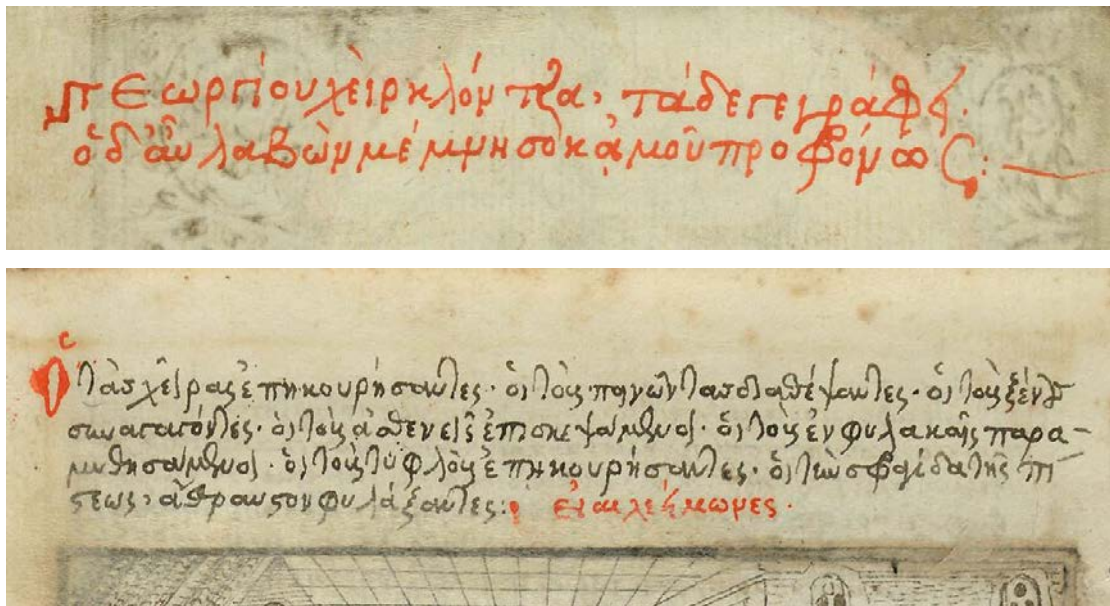 Γεωργίου χεὶρ κλόντζα, τάδε γεγράφη.
ὁ δ' ἂν λαβὼν μέμνησο κἀμοῦ προφρόνως:
Οἱ τὰς χεῖρας ἐπηκουρήσαντες· ὁι τοὺς πηνῶντας διαθέψαντες· ὁι τοὺς ξένους
συναγαγόντες· ὁι τοὺς ἀσθενεῖς ἐπισκεψάμενοι· ὁι τοὺς ἐν φυλακαῖς παρα-
μυθησάμενοι· ὁι τοὺς τυφλοὺς ἐπηκουρήσαντες· ὁι τὼ σφραγίδα τῆς πί
στεως, ἄθραυστον φυλάξαντες: ἐι αιλεήμωνες.